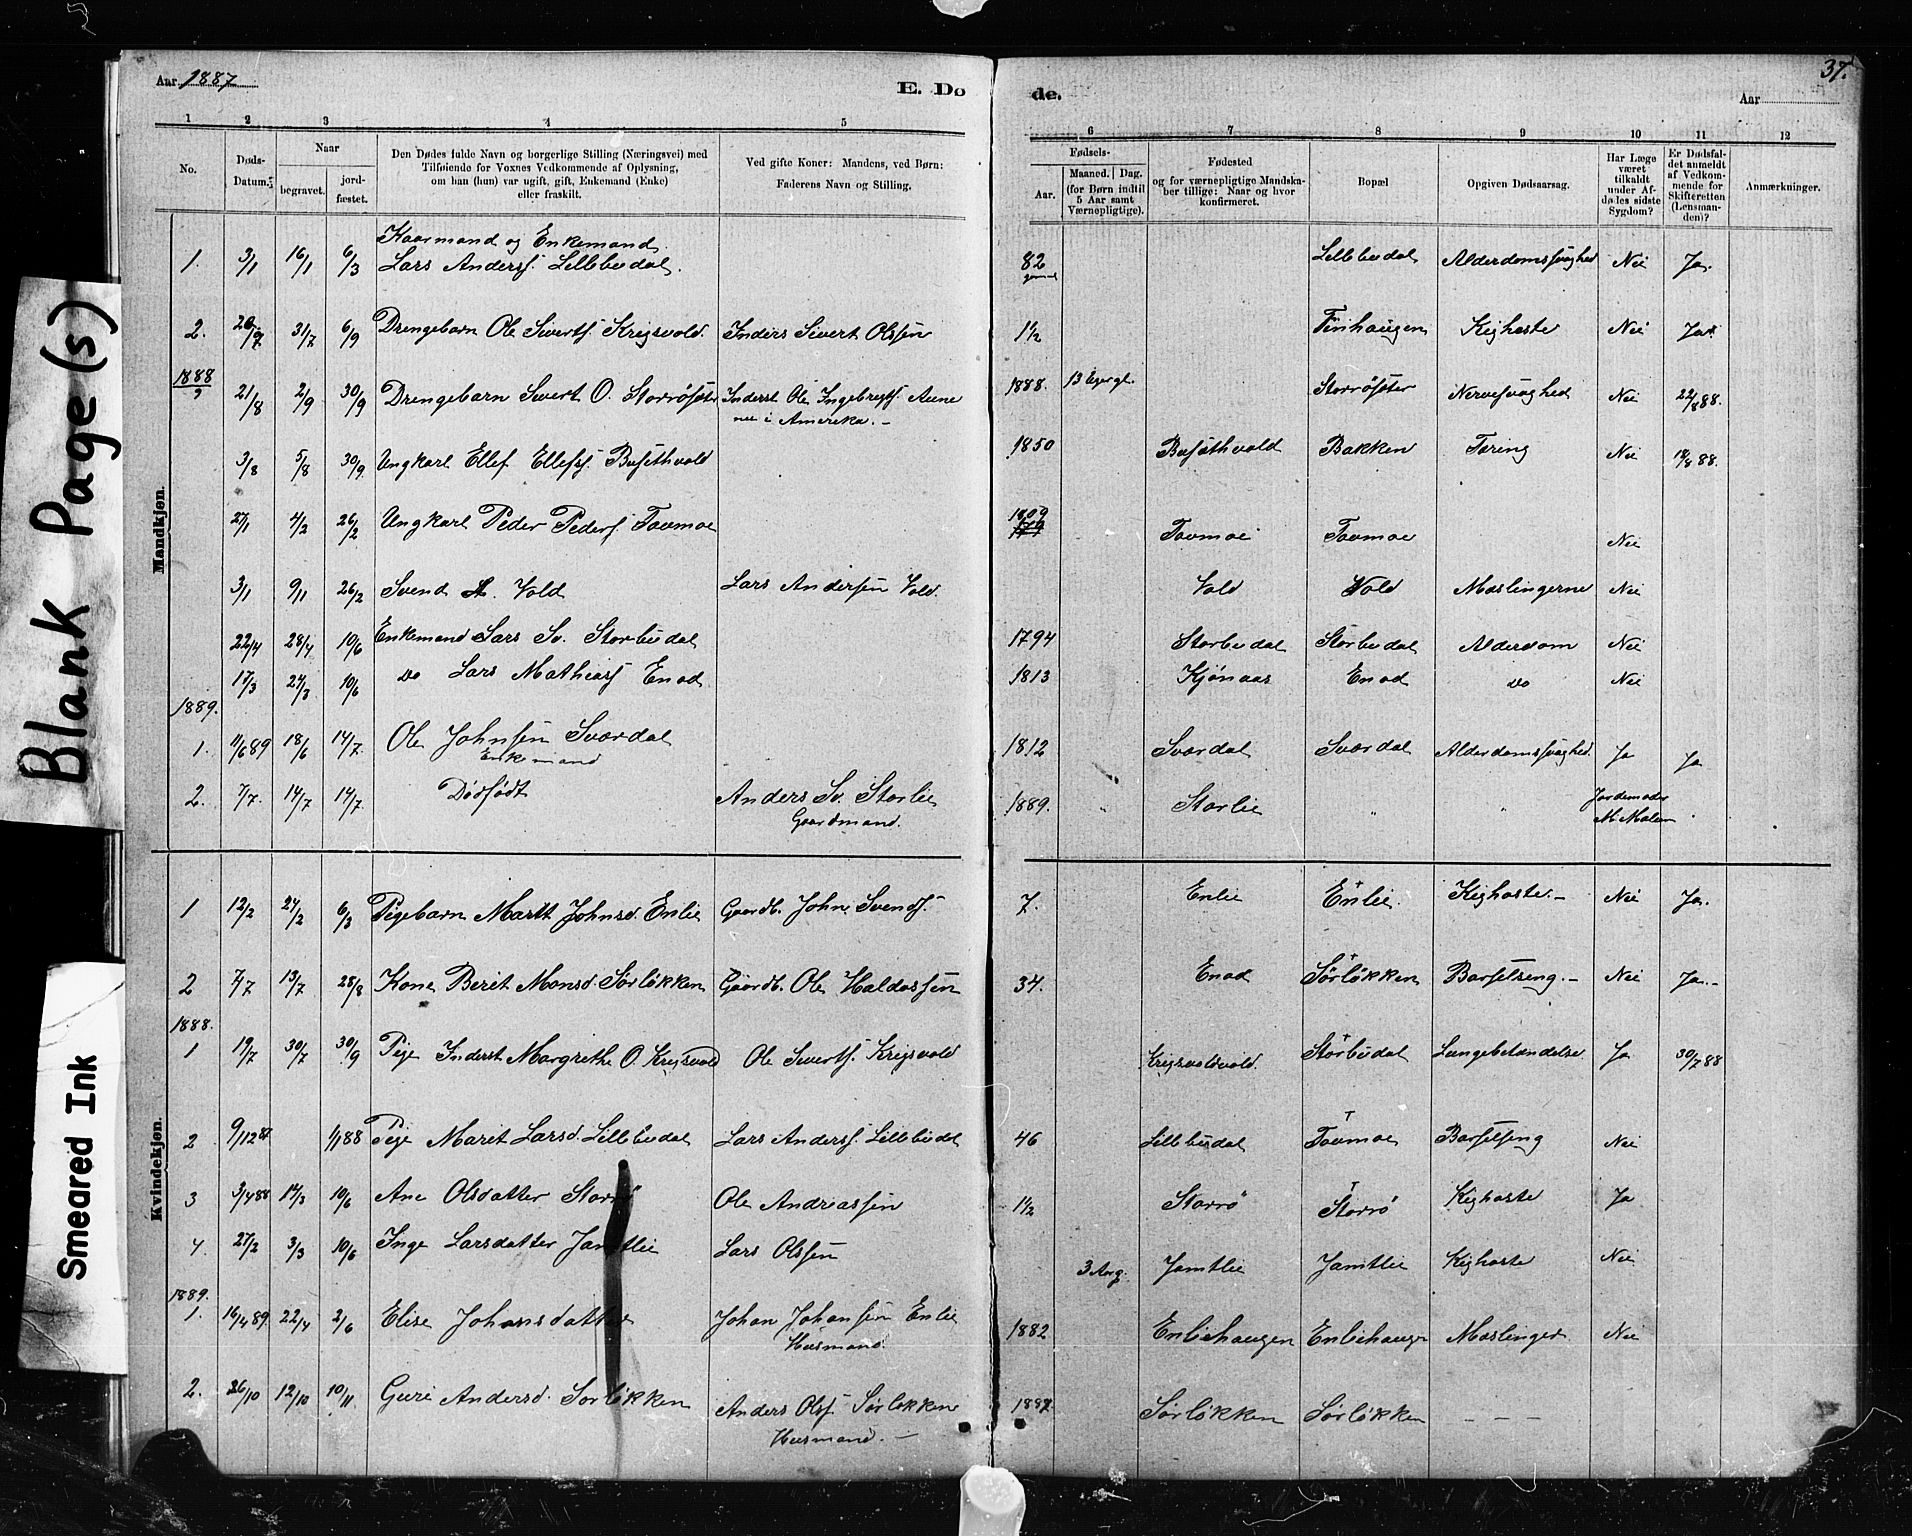 Aar 1887
E. Dø
de.
37.
Aar
1 2 3 4 5 6 7 8 9 10 11 12
No.
Døds-
Datum.
Naar
begravet.
jord-
fæstet.
Den Dødes fulde Navn og borgerlige Stilling (Næringsvei) med
Tilføiende for Voxnes Vedkommende af Oplysning,
om han (hun) var ugift, gift, Enkemand (Enke)
eller fraskilt.
Ved gifte Koner: Mandens, ved Børn:
Faderens Navn og Stilling.
Fødsels-
Aar.
Maaned. Dag.
(for Børn indtil
5 Aar samt
Værnepligtige).
Fødested
og for værnepligtige Mandska-
ber tillige: Naar og hvor
konfirmeret.
Bopæl
Opgiven Dødsaarsag.
Har Læge
været
tilkaldt
under Af-
dødes sidste
Sygdom?
Er Dødsfal-
det anmeldt
af Vedkom-
mende for
Skifteretten
(Lensman-
den)?
Anmærkninger.
Blank Page(s)
Smeared Ink
Mandkjøn.
Kaarmand og Enkemand
1. 3/1 16/1 6/3 Lars Anderss. Lillebudal. 82 Lillebudal Alderdomssvaghed Nei Ja.
2. 31/7 6/9 Drengebarn Ole Sivertss. Krigsvold. Inders Sivert Olssen 1 1/2 Kighoste Nei Ja.
1888
21/8 2/9 30/9 Drengebarn Sivert O. Storrøsster Inderst Ole Ingebregts. Aune 1888. Storrøsster Nervesvaghed Nei 22/8 88.
nu i Amerika. –
3/8 5/8 30/9 Ungkarl Ellef Ellefss. Busethvold 1850 Busethvold Bakken Tæring Nei 88.
27/1 4/2 26/2 Ungkarl Peder Peders. Tovmoe 1809 Tovmoe Tovmoe Nei
3/1 9/1 26/2 Svend A. Vold Lars Andersen Vold. Vold Vold Mæslingerne Nei
22/4 28/4 10/6 Enkemand Lars Sv. Storbudal 1794 Storbudal Storbudal Alderdom Nei
17/3 24/3 10/6 Do Lars Mathiass Enod 1813 Kjønaas Enod Do Nei
1889.
1. 11/6 89 18/6 14/7. Ole Johnsen Sværdal 1812 Sværdal Sværdal Alderdomssvaghed. Ja Ja
Enkemand
2. 7/7. 14/7 14/7. Dødfødt Anders Sv. Storlie 1889. " Storlie " " Jordemoder
Gaardmand.
Kvindekjøn.
1 12/2 27/2 6/3 Pigebarn Marit Johnsd. Enlie Gaardb. John Svends. 7. Enlie Enlie. Kighoste. – Nei Ja.
2 7/7 13/7 28/8 Kone Berit Monsd. Sørløkken Gaardb. Ole Haldossen 34. Enod Sørløkken Barselseng. – Nei Ja. –
1888.
1 19/7 30/7 30/9 Pige Inderst Margrethe O. Krigsvold Ole Sivertss. Krigsvold Krigsvoldvold. Storbudal Lungebetændelse Ja 30/7 88
2 9/12 87 1/1 88 Pige Marit Larsd. Lillebudal Lars Anderss. Lillebudal 46 Lillebudal Tovmoe Barselseng Nei
3 3/4 88 14/3 10/6 Ane Olsdatter Storrø Ole Andreassen 1 1/2 Storrø Storrø Kighoste Ja
4. 27/2 3/3 10/6 Inge Larsdatter Jamtlie Lars Olssen Jamtlie Jamtlie Kighoste Nei
1889.
1. 16/4 89. 22/4 2/6 Elise Johansdatter Johan Johansen Enlie 1882. Enliehaugen Enliehaugen Mæslinger. Nei
Husmand.
2. 26/10 12/10 10/11 Guri Andersd. Sørløkken Anders Ols. Sørløkken Sørløkken Sørløkken – – –
Husmand. –